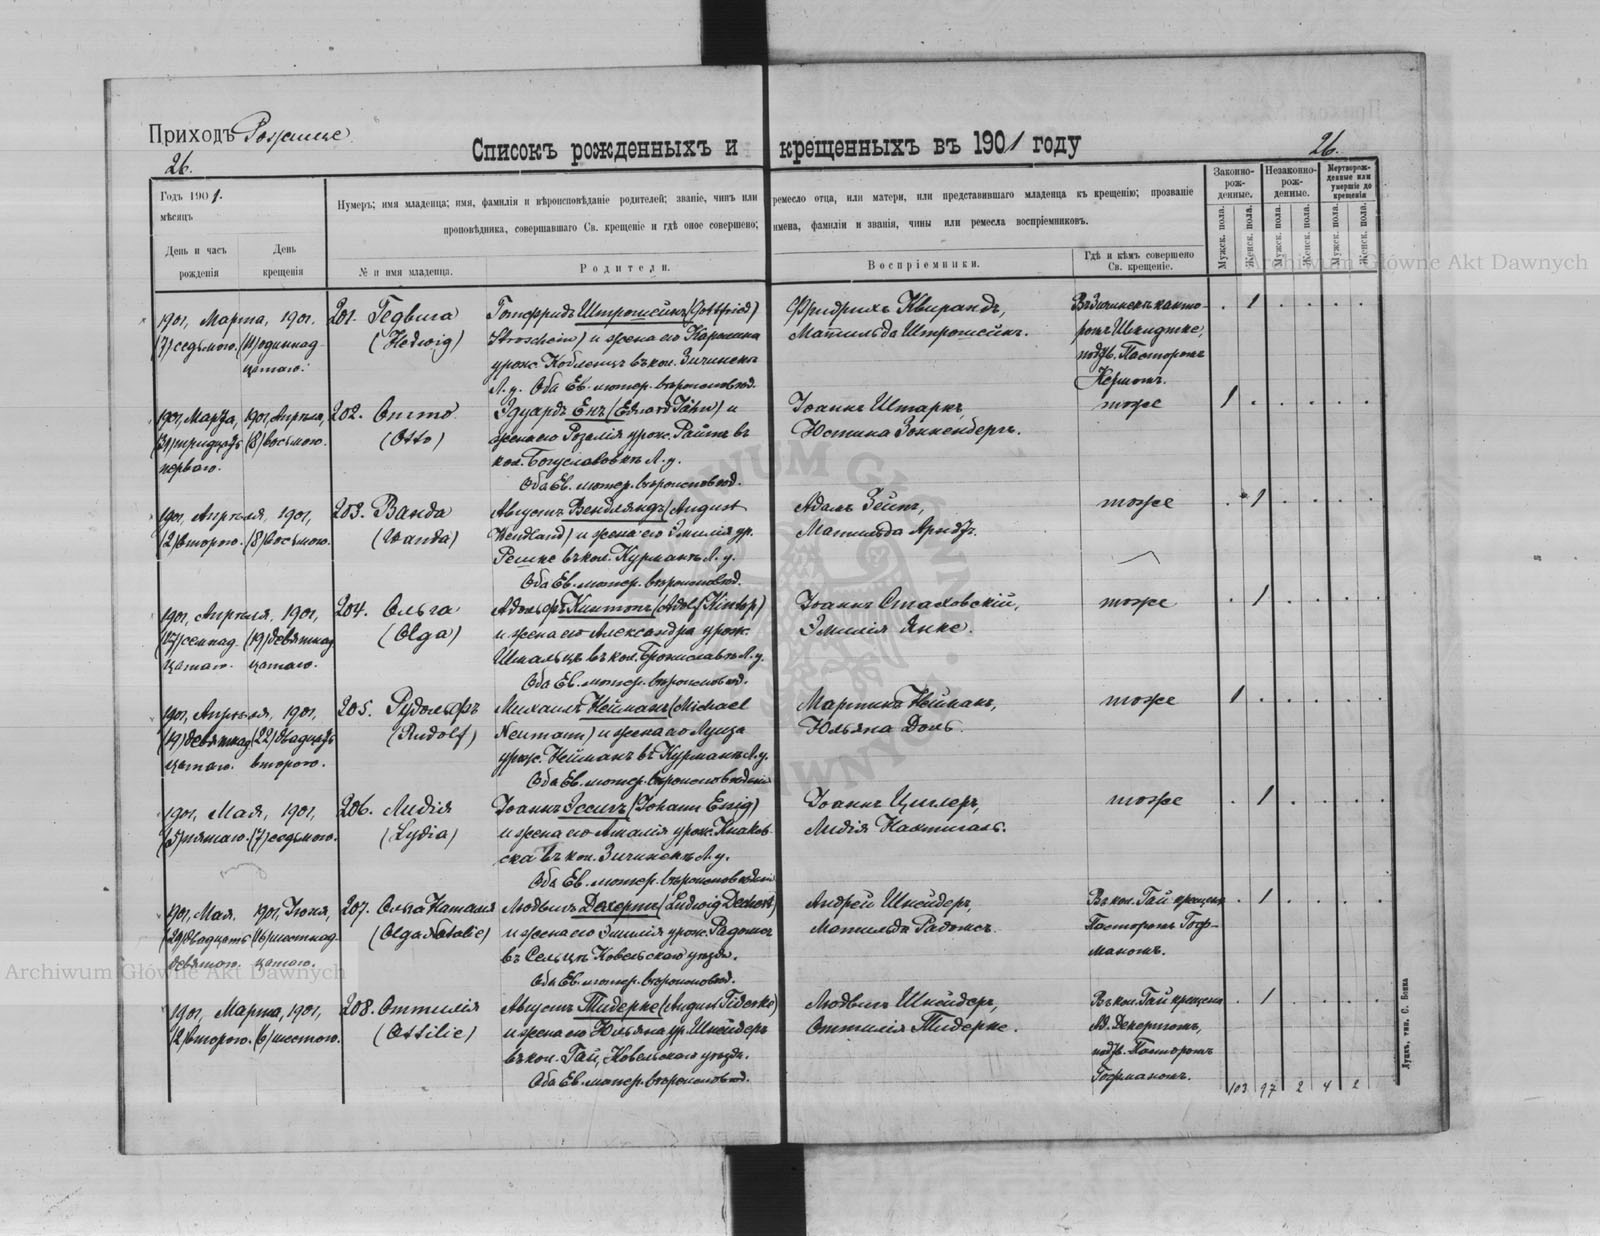 Приходъ Рожище
26.
Списокъ рожденныхъ и крещенныхъ въ 1901 году
26.
Годъ 1901.
мѣсяцъ
День и часъ рожденія
День крещенія
Нумеръ; имя младенца; имя, фамилія и вѣроисповѣданіе родителей; званіе, чинъ или ремесло отца, или матери, или представившаго младенца къ крещенію; прозваніе
проповѣдника, совершавшаго Св. крещеніе и гдѣ оное совершено; имена, фамиліи и званія, чины или ремесла воспріемниковъ.
№ и имя младенца.
Родители.
Воспріемники.
Гдѣ и кѣмъ совершено Св. крещеніе.
Законно-рож-денные.
Незаконно-рож-денные.
Мертворож-денные или умершіе до крещенія
Мужск. пола.
Женск. пола.
Мужск. пола.
Женск. пола.
Мужск. пола.
Женск. пола.
1901, Марта, 1901.
(7) седьмого. (11) одиннад-
цатаго.
201. Гедвига
(Hedwig)
Готфридъ Штрошейнъ (Gottfried
Stroschein) и жена его Каролина
урож. Кобленцъ въ кол. Зичинекъ
Л. у. Оба Ев. лютер. вѣроисповѣд.
Фридрихъ Квирандъ,
Матильда Штрошейнъ.
Въ Зичинекъ канто-
ромъ Шкидтке,
подтв. Пасторомъ
Кермомъ.
1
1901, Марта, 1901, Апрѣля,
(31) тридцать (8) восьмого.
перваго.
202. Отто
(Otto)
Эдуардъ Енъ (Eduard Jähn) и
жена его Розалія урож. Райтъ въ
кол. Богуславовкѣ Л. у.
Оба Ев. лютер. вѣроисповѣд.
Іоаннъ Штаркъ,
Юстина Зонненбергъ.
тоже
1
1901, Апрѣля, 1901,
(2) второго. (8) восьмого.
203. Ванда
(Wanda)
Августъ Вендляндъ (August
Wendland) и жена его Эмилія ур.
Решке въ кол. Курманъ Л. у.
Оба Ев. лютер. вѣроисповѣд.
Адамъ Зейпъ,
Матильда Арндтъ.
тоже
1
1901, Апрѣля, 1901,
(17) семнад- (19) девятнад-
цатаго. цатаго.
204. Ольга
(Olga)
Адольфъ Кинтопъ (Adolf Kintop)
и жена его Александра урож.
Шмальцъ въ кол. Брониславкѣ Л. у.
Оба Ев. лютер. вѣроисповѣд.
Іоаннъ Стаховскій,
Эмилія Янке.
тоже
1
1901, Апрѣля, 1901,
(19) девятнад- (22) двадцать
цатаго. второго.
205. Рудольфъ
(Rudolf)
Михаилъ Нейманъ (Michael
Neumann) и жена его Луиза
урож. Нейманъ въ Курманъ Л. у.
Оба Ев. лютер. вѣроисповѣданія
Мартинъ Нейманъ,
Юльяна Доль.
тоже
1
1901, Мая, 1901,
(5) пятаго. (7) седьмого.
206. Лидія
(Lydia)
Іоаннъ Эссигъ (Johann Essig)
и жена его Амалія урож. Киаков-
ска въ кол. Зичинекъ Л. у.
Оба Ев. лютер. вѣроисповѣданія
Іоаннъ Циглеръ,
Лидія Нахтигаль.
тоже
1
1901, Мая. 1901, Іюня,
(29) двадцать (16) шестнад-
девятого. цатаго.
207. Ольга Наталія
(Olga Natalie)
Людвигъ Дехертъ (Ludwig Dechert)
и жена его Эмилія урож. Радомсъ
въ Сельцѣ Ковельскаго уѣзда.
Оба Ев. лютер. вѣроисповѣд.
Андрей Шнейдеръ,
Матильда Радомсъ.
Въ кол. Гай крещена
Пасторомъ Гоф-
маномъ.
1
1901, Марта, 1901,
(2) второго. (6) шестого.
208. Оттилія
(Ottilie)
Августъ Тидерке (August Tiderke)
и жена его Юльяна ур. Шнейдеръ
въ кол. Гай, Ковельскаго уѣзда.
Оба Ев. лютер. вѣроисповѣд.
Людвигъ Шнейдеръ,
Оттилія Тидерке.
Въ кол. Гай крещена
Ад. Декертомъ,
подтв. Пасторомъ
Гофманомъ.
1
103 97 2 4 2
Луцкъ, тип. С. Бонка
Archiwum Główne Akt Dawnych
Archiwum Główne Akt Dawnych